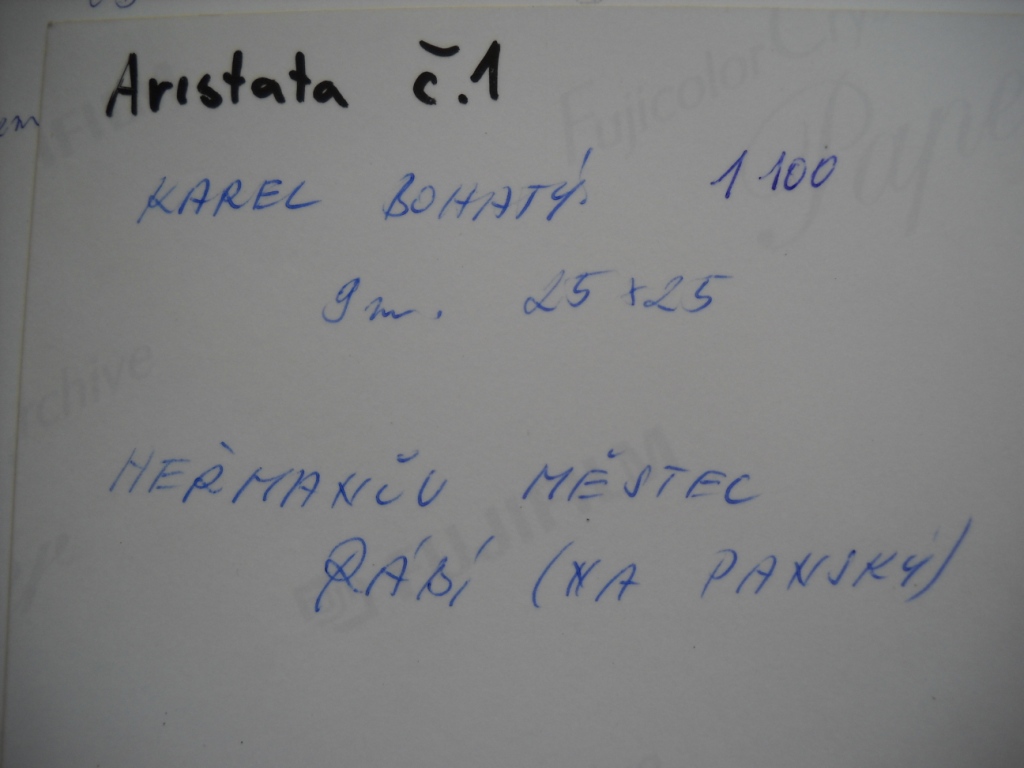 Aristata č.1
KAREL BOHATÝ. 1 100
9 m. 25 x 25
HEŘMANČU MĚSTEC
RÁBÍ (NA PANSKÝ)
FUJIFILM
Fujicolor Crystal
Paper
Archive
em